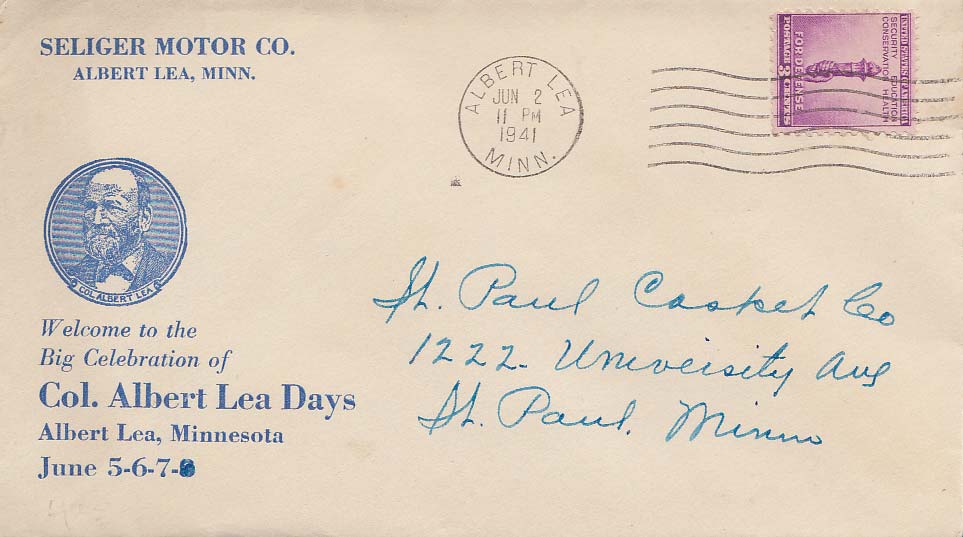 SELIGER MOTOR CO.
ALBERT LEA, MINN.
ALBERT LEA
JUN 2
11 PM
1941
MINN.
UNITED STATES OF AMERICA
SECURITY EDUCATION
CONSERVATION HEALTH
FOR DEFENSE
POSTAGE 3 CENTS
COL. ALBERT LEA
Welcome to the
Big Celebration of
Col. Albert Lea Days
Albert Lea, Minnesota
June 5-6-7-8
St. Paul Casket Co
1222- University Ave
St. Paul, Minn